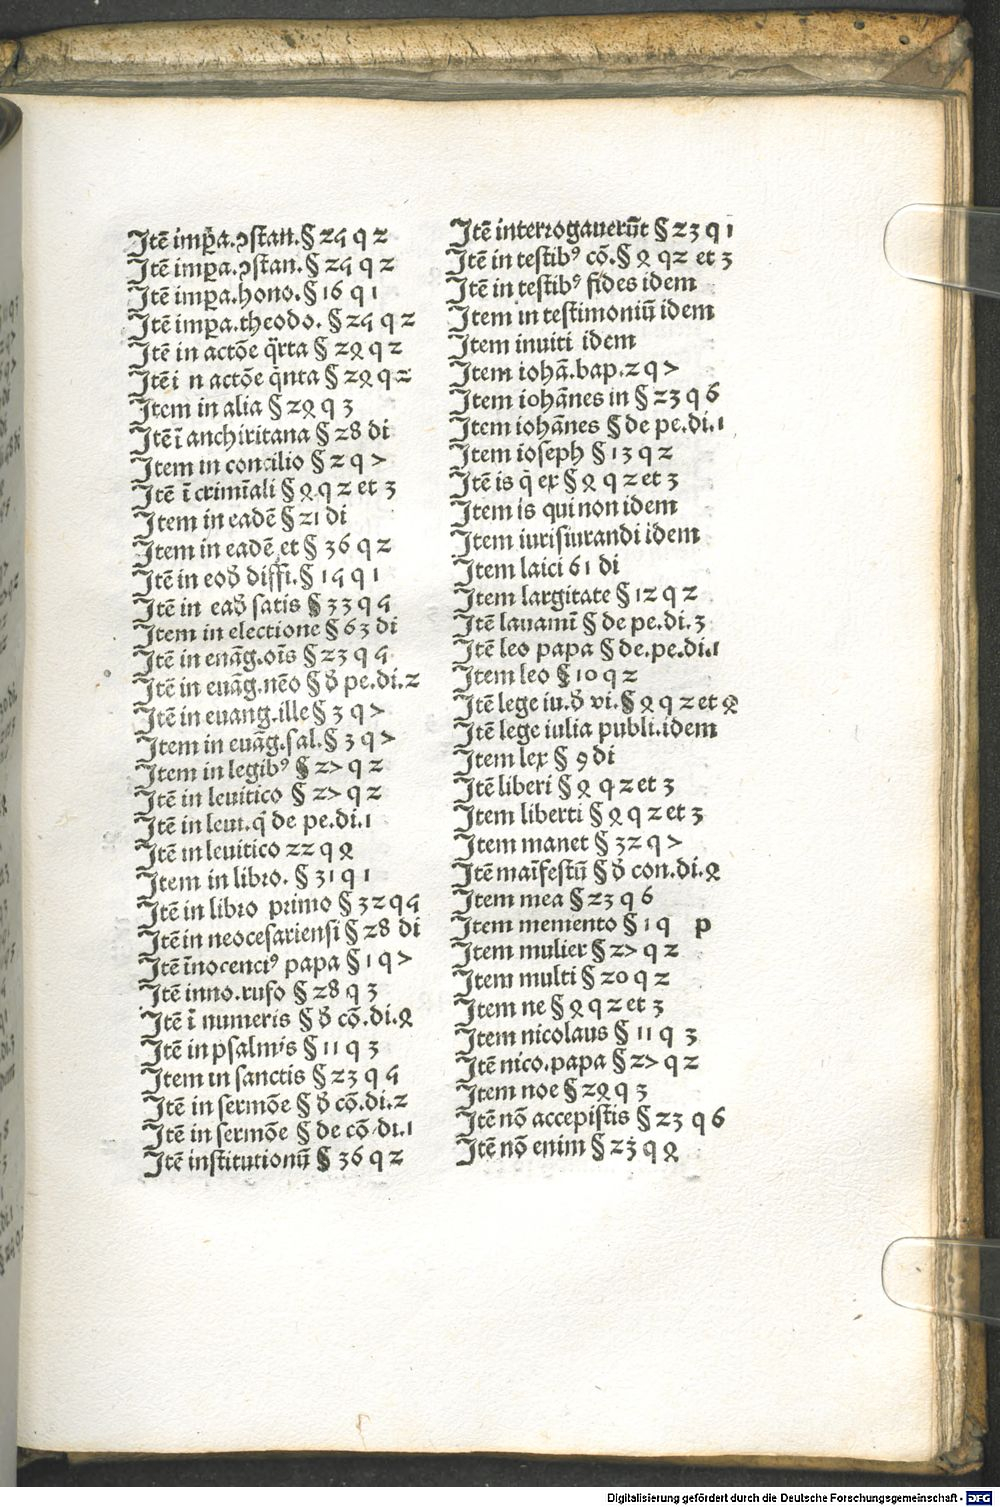 Itē imp̄a.ↄstan.§ 25 q 2
Itē imp̄a.ↄstan.§ 25 q 2
Itē imp̄a.hono.§ 16 q 1
Itē imp̄a.theodo. § 25 q 2
Itē in actōe q̈rta § 24 q 2
Itē i n actōe q̇nta § 24 q 2
Item in alia § 24 q 3
Itē ī anchiritana § 28 di
Item in concilio § 2 q 7
Itē ī crimīali § 4 q 2 et 3
Item in eadē § 21 di
Item in eadē et § 36 q 2
Itē in eoď diffi.§ 15 q 1
Itē in eaď satis § 33 q 5
Item in electione § 63 di
Itē in euāg.oīs § 23 q 5
Itē in euāg.nēo § ď pe.di.2
Itē in euang.ille § 3 q 7
Item in euāg.sal.§ 3 q 7
Item in legibꝰ § 27 q 2
Itē in leuitico § 27 q 2
Itē in leui.q̄ de pe.di.1
Itē in leuitico 22 q 4
Item in libro. § 31 q 1
Itē in libro primo § 32 q 5
Itē in neocesariensi § 28 di
Itē īnocenciꝰ papa § 1 q 7
Itē inno.rufo § 28 q 3
Itē ī numeris § ď cō.di.4
Itē in psalmis § 11 q 3
Item in sanctis § 23 q 5
Itē in sermōe § ď cō.di.2
Itē in sermōe § de cō di.1
Itē institutionū § 36 q 2
Itē interrogauerūt § 23 q 1
Itē in testibꝰ cō.§ 4 q 2 et 3
Itē in testibꝰ fides idem
Item in testimoniū idem
Item inuiti idem
Item iohā.bap.2 q 7
Item iohānes in § 23 q 6
Item iohānes § de pe.di.1
Item ioseph § 13 q 2
Itē is q̇ ex § 4 q 2 et 3
Item is qui non idem
Item iurisiurandi idem
Item laici 61 di
Item largitate § 12 q 2
Itē lauamī § de pe.di.3
Itē leo papa § de.pe.di.1
Item leo § 10 q 2
Itē lege iu.ď vi.§ 4 q 2 et 4
Itē lege iulia publi.idem
Item lex § 9 di
Itē liberi § 4 q 2 et 3
Item liberti § 4 q 2 et 3
Item manet § 32 q 7
Itē maīfestū § ď con.di.4
Item mea § 23 q 6
Item memento § 1 q p
Item mulier § 27 q 2
Item multi § 20 q 2
Item ne § 4 q 2 et 3
Item nicolaus § 11 q 3
Itē nico.papa § 27 q 2
Item noe § 24 q 3
Itē nō accepistis § 23 q 6
Itē nō enim § 23 q 4
Digitalisierung gefördert durch die Deutsche Forschungsgemeinschaft - DFG